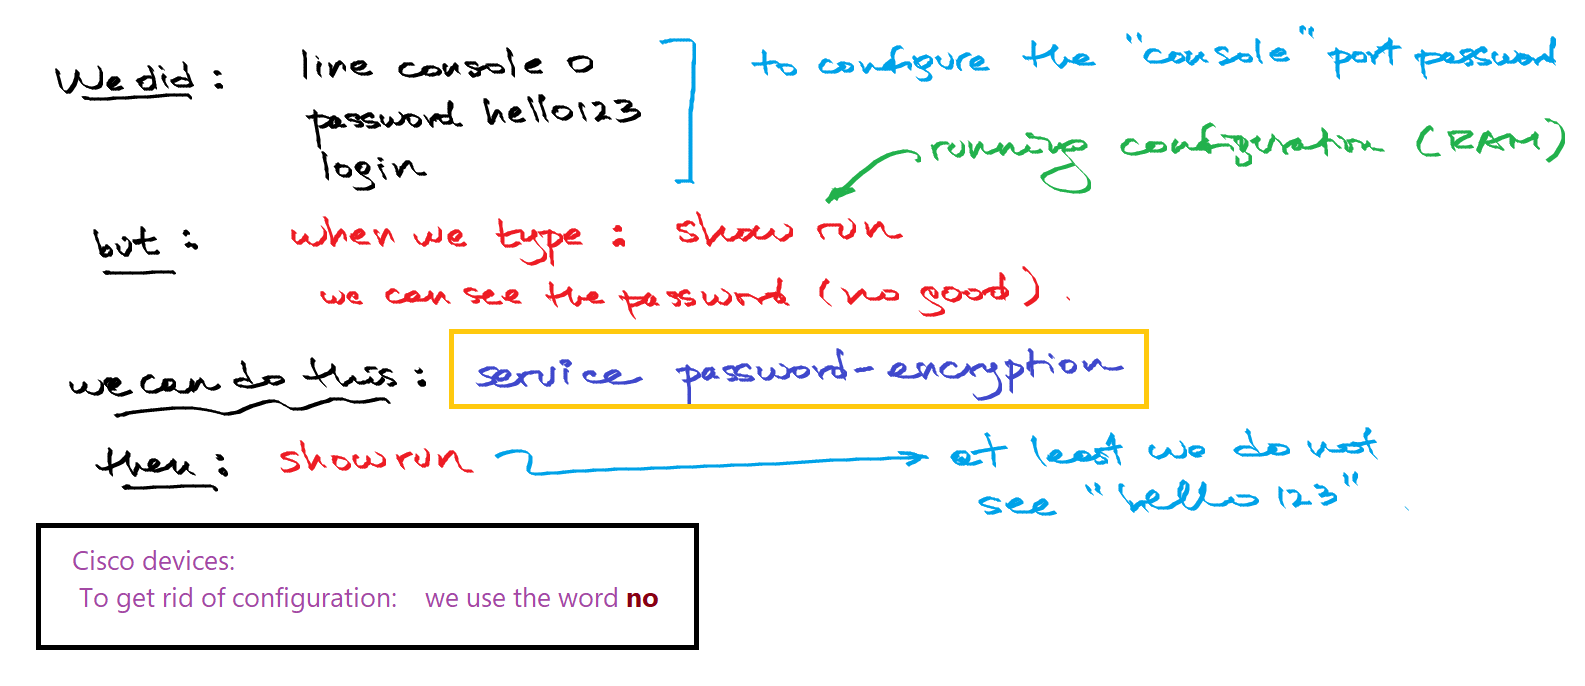 We did : line console 0 to configure the "console" port password
password hello123
login running configuration (RAM)
but : when we type : show run
we can see the password (no good).
we can do this : service password-encryption
then : show run at least we do not
see "hello123".
Cisco devices:
To get rid of configuration: we use the word no